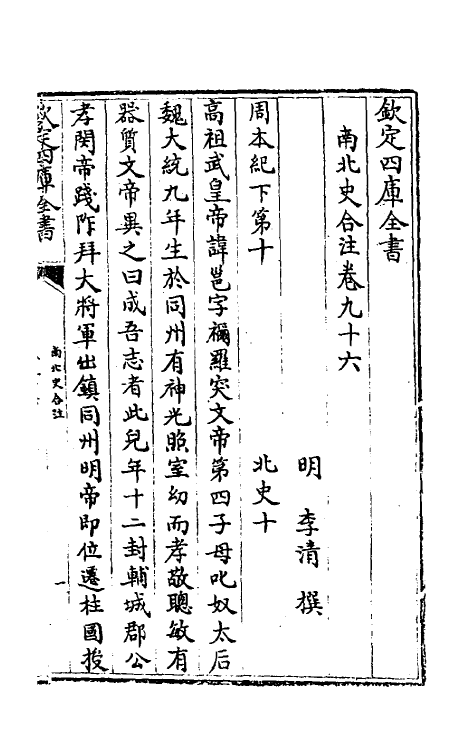 欽定四庫全書
南北史合注卷九十六
明 李清 撰
周本紀下第十 北史十
高祖武皇帝諱邕字禰羅突文帝第四子母叱奴太后
魏大統九年生於同州有神光照室幼而孝敬聰敏有
器質文帝異之曰成吾志者此兒年十二封輔城郡公
孝閔帝踐阼拜大將軍出鎮同州明帝即位遷柱國授
欽定四庫全書
南北史合注
一